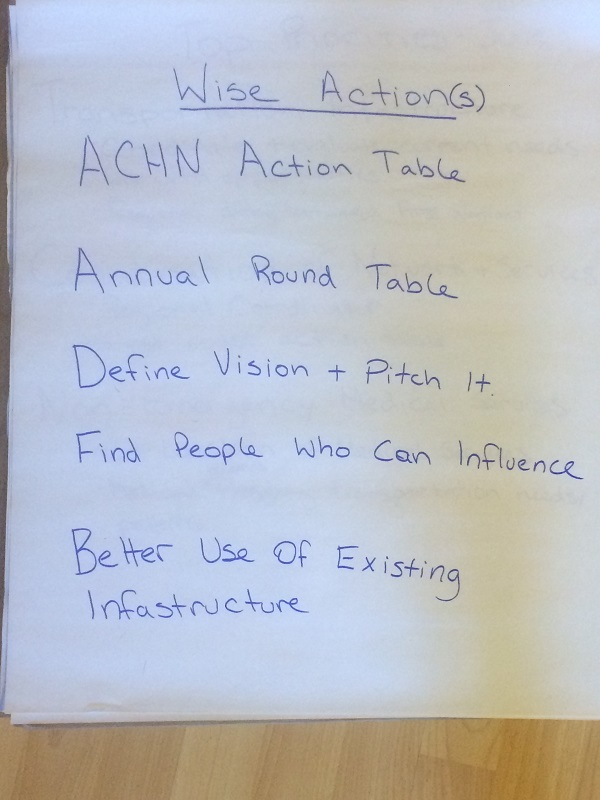 Wise Action(s)
ACHN Action Table
Annual Round Table
Define Vision + Pitch It.
Find People Who Can Influence
Better Use Of Existing
Infastructure